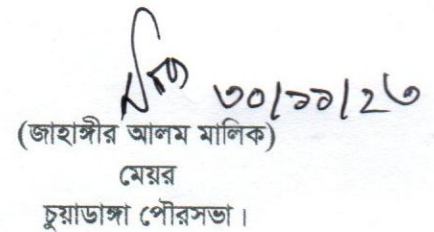 ৩০/১১/২৩
(জাহাঙ্গীর আলম মালিক)
মেয়র
চুয়াডাঙ্গা পৌরসভা।